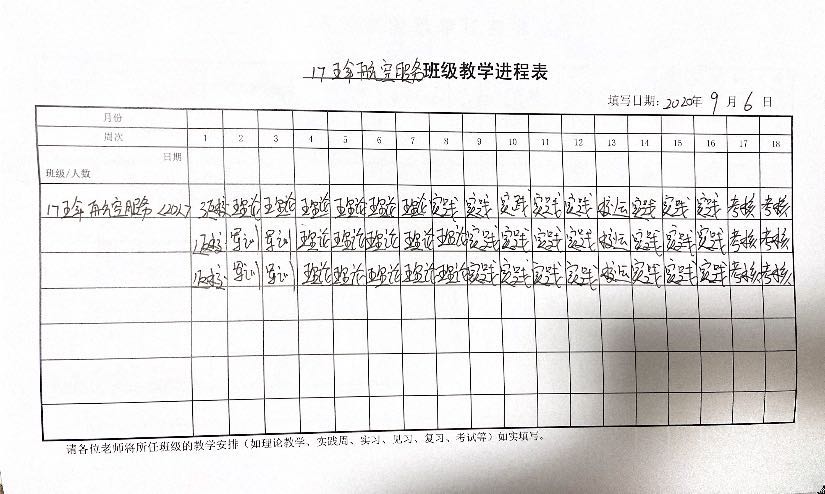 17五年航空服务班级教学进程表
填写日期:2020年9月6日
月份
周次 1 2 3 4 5 6 7 8 9 10 11 12 13 14 15 16 17 18
日期
班级/人数
17五年航空服务 返校 理论 理论 理论 理论 理论 理论 实践 实践 实践 实践 实践 校运 实践 实践 实践 考核 考核
返校 军训 军训 理论 理论 理论 理论 理论 实践 实践 实践 实践 校运 实践 实践 实践 考核 考核
返校 军训 军训 理论 理论 理论 理论 理论 实践 实践 实践 实践 校运 实践 实践 实践 考核 考核
请各位老师将所任班级的教学安排(如理论教学、实践周、实习、见习、复习、考试等)如实填写。